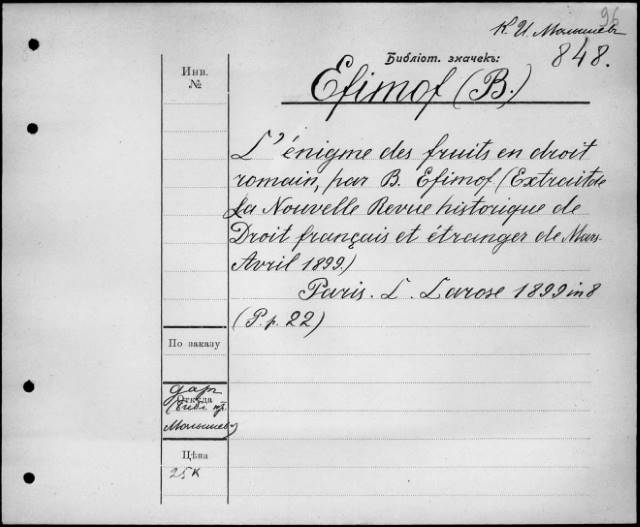 96
К. И. Малышев
Библіот. значекъ:
848.
Инв.
№
Efimof (B.)
L'énigme des fruits en droit
romain, par B. Efimof (Extrait de
la Nouvelle Revue historique de
Droit français et étranger de Mars-
Avril 1899.)
Paris. L. Larose 1899 in 8
(P. p. 22)
По заказу
Откуда
даръ
Малышев)
Цѣна
25 к